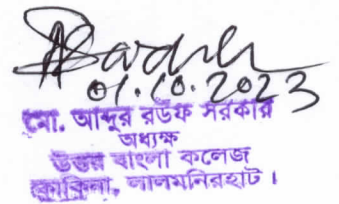 01.10.2023
মো. আব্দুর রউফ সরকার
অধ্যক্ষ
উত্তর বাংলা কলেজ
কাকিনা, লালমনিরহাট।